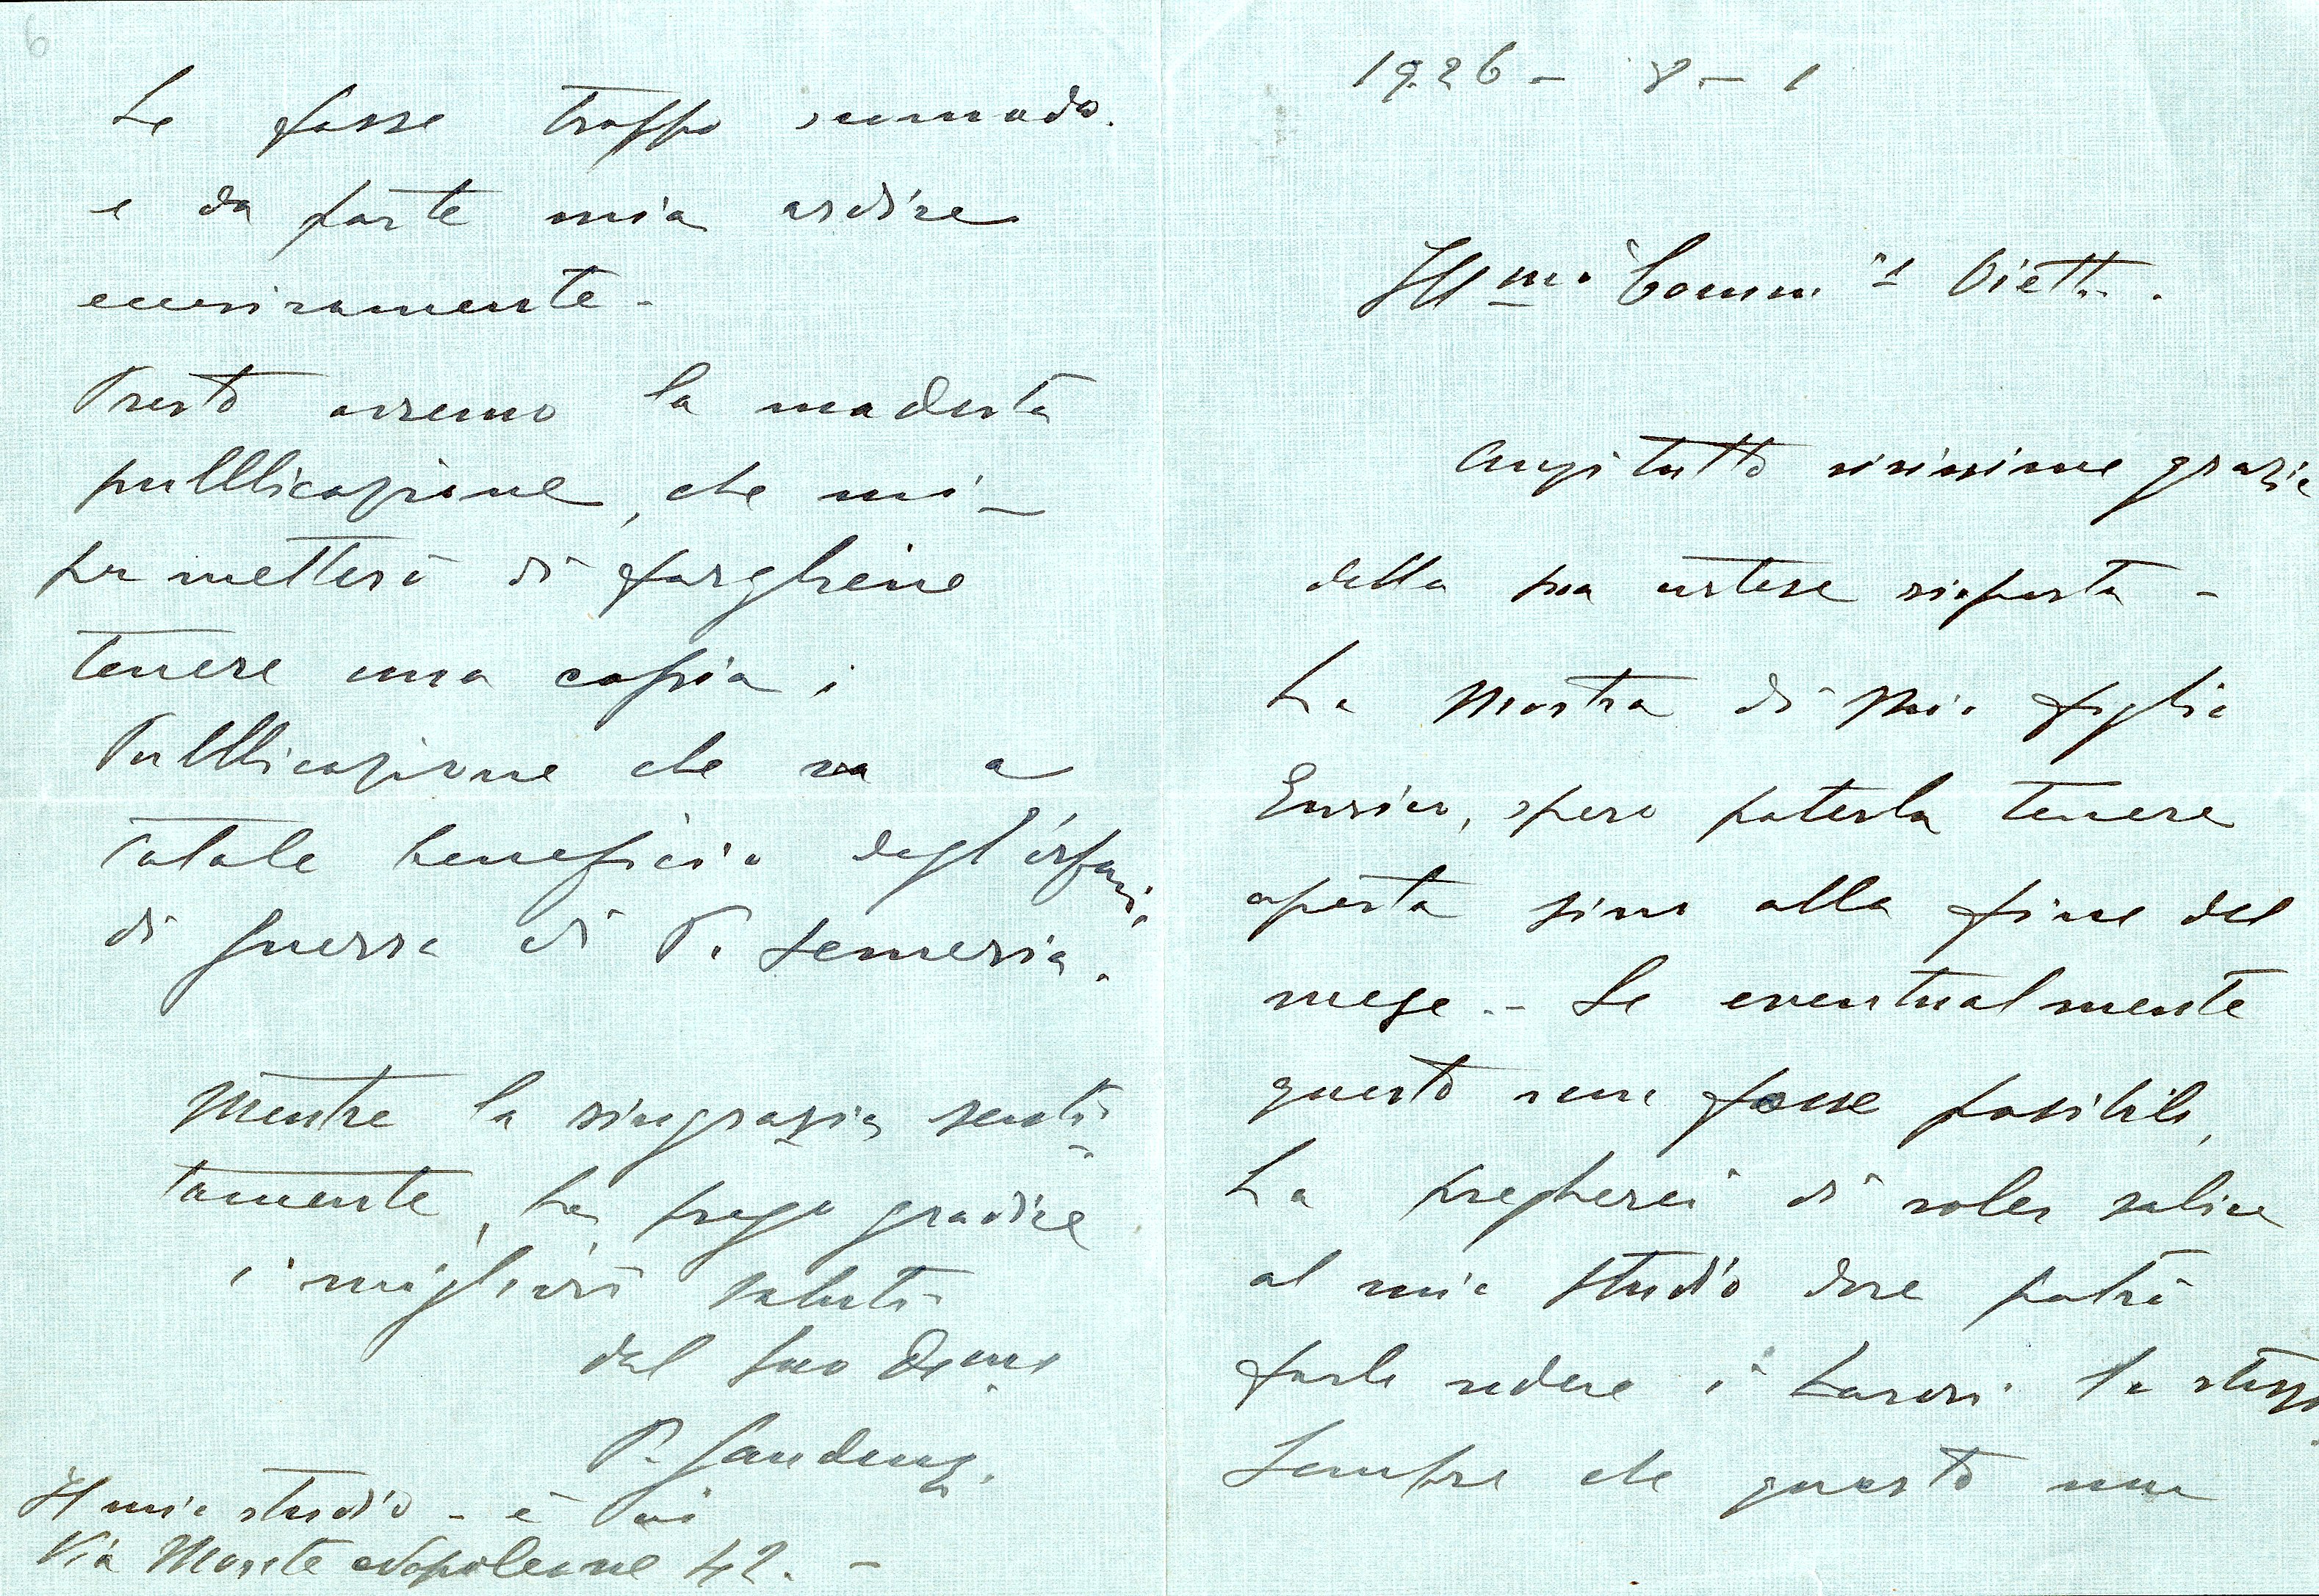 1926 - 8 - 1
Ill mo Comm. Vietti.
Anzi tutto vivissime grazie
della sua cortese risposta -
La Mostra di mio figlio
Enrico, spero poterla tenere
aperta sino alla fine del
mese. - Se eventualmente
questo non fosse possibile,
La pregherei di voler salire
al mio studio dove potrò
farle vedere i Lavori lo stesso
Sempre che questo non
Le fosse troppo incomodo.
e da parte mia ardire
eccessivamente -
Presto avremo la modesta
pubblicazione, che mi
permetterò di fargliene
tenere una copia.
Pubblicazione che va a
totale beneficio degl'orfani
di guerra di P. Semeria.
Mentre la ringrazio senti-
tamente, La prego gradire
i migliori saluti
dal suo Dev mo
P. Gaudenzi.
Il mio studio - è qui
Via Monte Napoleone 42. -
6